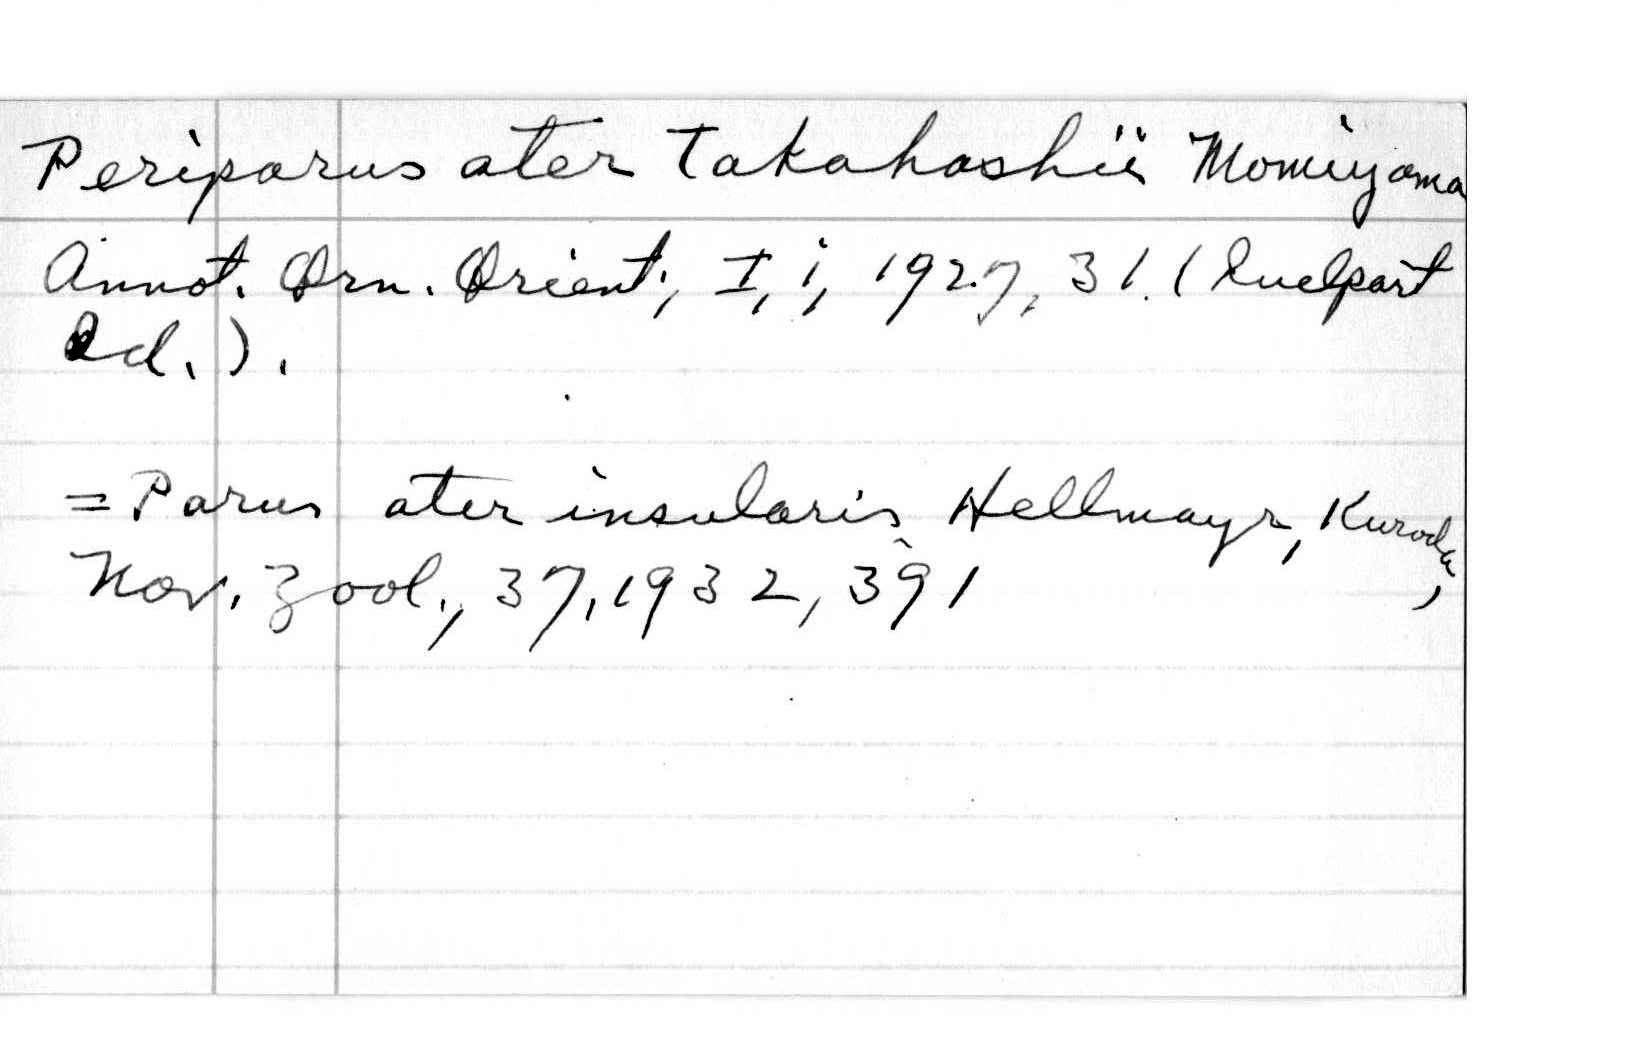 Periparus ater takahashii Momiyama
Annot. Orn. Orient., I, i, 1927, 31. (Quelpart
Id.).
= Parus ater insularis Hellmayr, Kuroda,
Nov. Zool., 37, 1932, 391